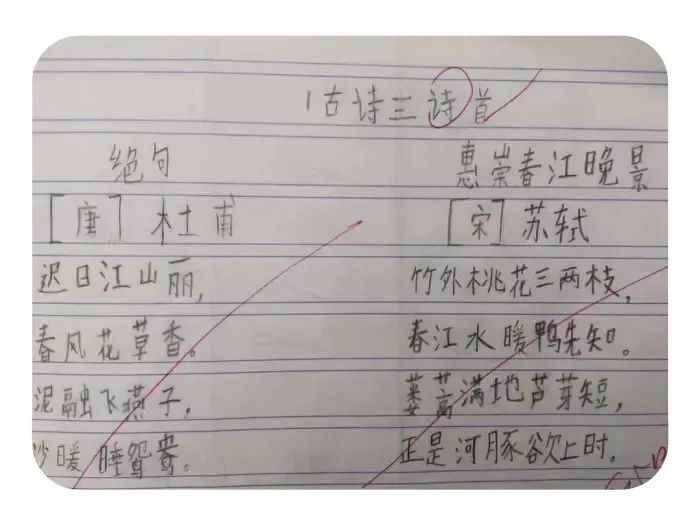 1古诗三诗首
绝句
[唐] 杜甫
迟日江山丽,
春风花草香。
泥融飞燕子,
沙暖睡鸳鸯。
惠崇春江晚景
[宋] 苏轼
竹外桃花三两枝,
春江水暖鸭先知。
蒌蒿满地芦芽短,
正是河豚欲上时。